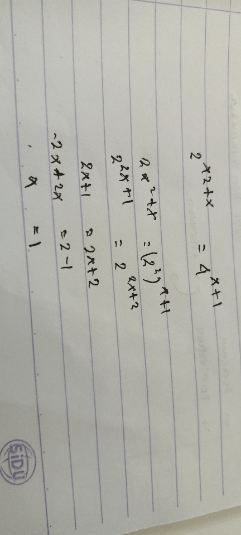 2^{x2+x} = 4^{x+1}
2^{x^2+x} = (2^2)^{x+1}
2^{2x+1} = 2^{2x+2}
2x+1 = 2x+2
-2x+2x = 2-1
x = 1
SIDU